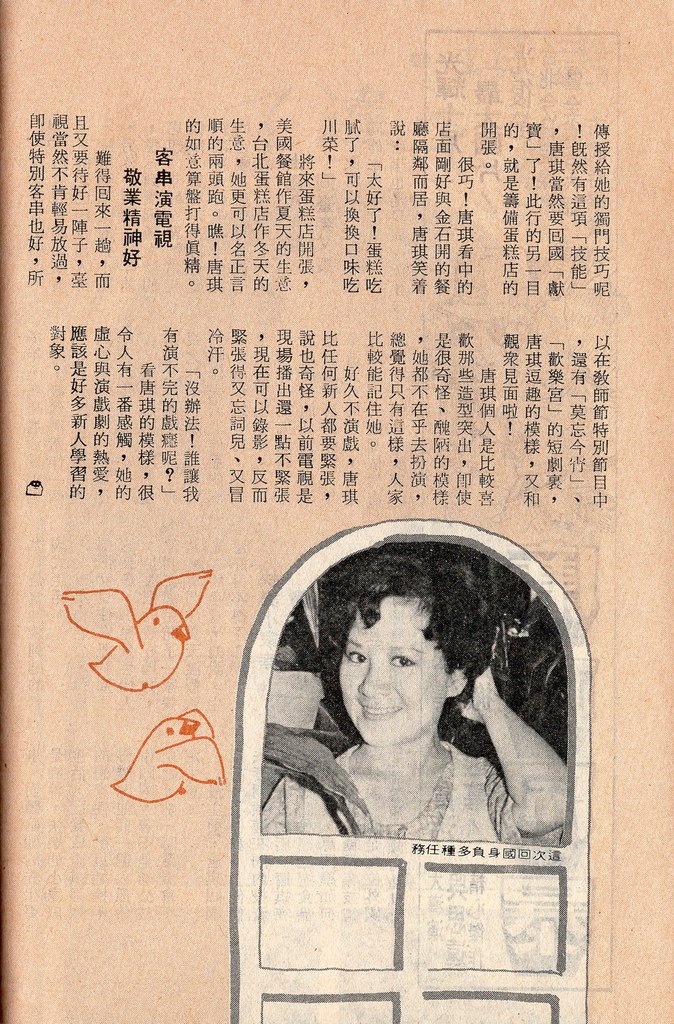 傳授給她的獨門技巧呢
！旣然有這項「技能」
，唐琪當然要回國「獻
寶」了！此行的另一目
的，就是籌備蛋糕店的
開張。
很巧！唐琪看中的
店面剛好與金石開的餐
廳隔鄰而居，唐琪笑着
說：
「太好了！蛋糕吃
膩了，可以換換口味吃
川菜！」
將來蛋糕店開張，
美國餐館作夏天的生意
，台北蛋糕店作冬天的
生意，她更可以名正言
順的兩頭跑。瞧！唐琪
的如意算盤打得眞精。
客串演電視
敬業精神好
難得回來一趟，而
且又要待好一陣子，臺
視當然不肯輕易放過，
卽使特別客串也好，所
以在敎師節特別節目中
，還有「莫忘今宵」、
「歡樂宮」的短劇裏，
唐琪逗趣的模樣，又和
觀衆見面啦！
唐琪個人是比較喜
歡那些造型突出，卽使
是很奇怪、醜陋的模樣
，她都不在乎去扮演，
總覺得只有這樣，人家
比較能記住她。
好久不演戲，唐琪
比任何新人都要緊張，
說也奇怪，以前電視是
現場播出還一點不緊張
，現在可以錄影，反而
緊張得又忘詞兒、又冒
冷汗。
「沒辦法！誰讓我
有演不完的戲癮呢？」
看唐琪的模樣，很
令人有一番感觸，她的
虛心與演戲劇的熱愛，
應該是好多新人學習的
對象。
務任種多負身國回次這